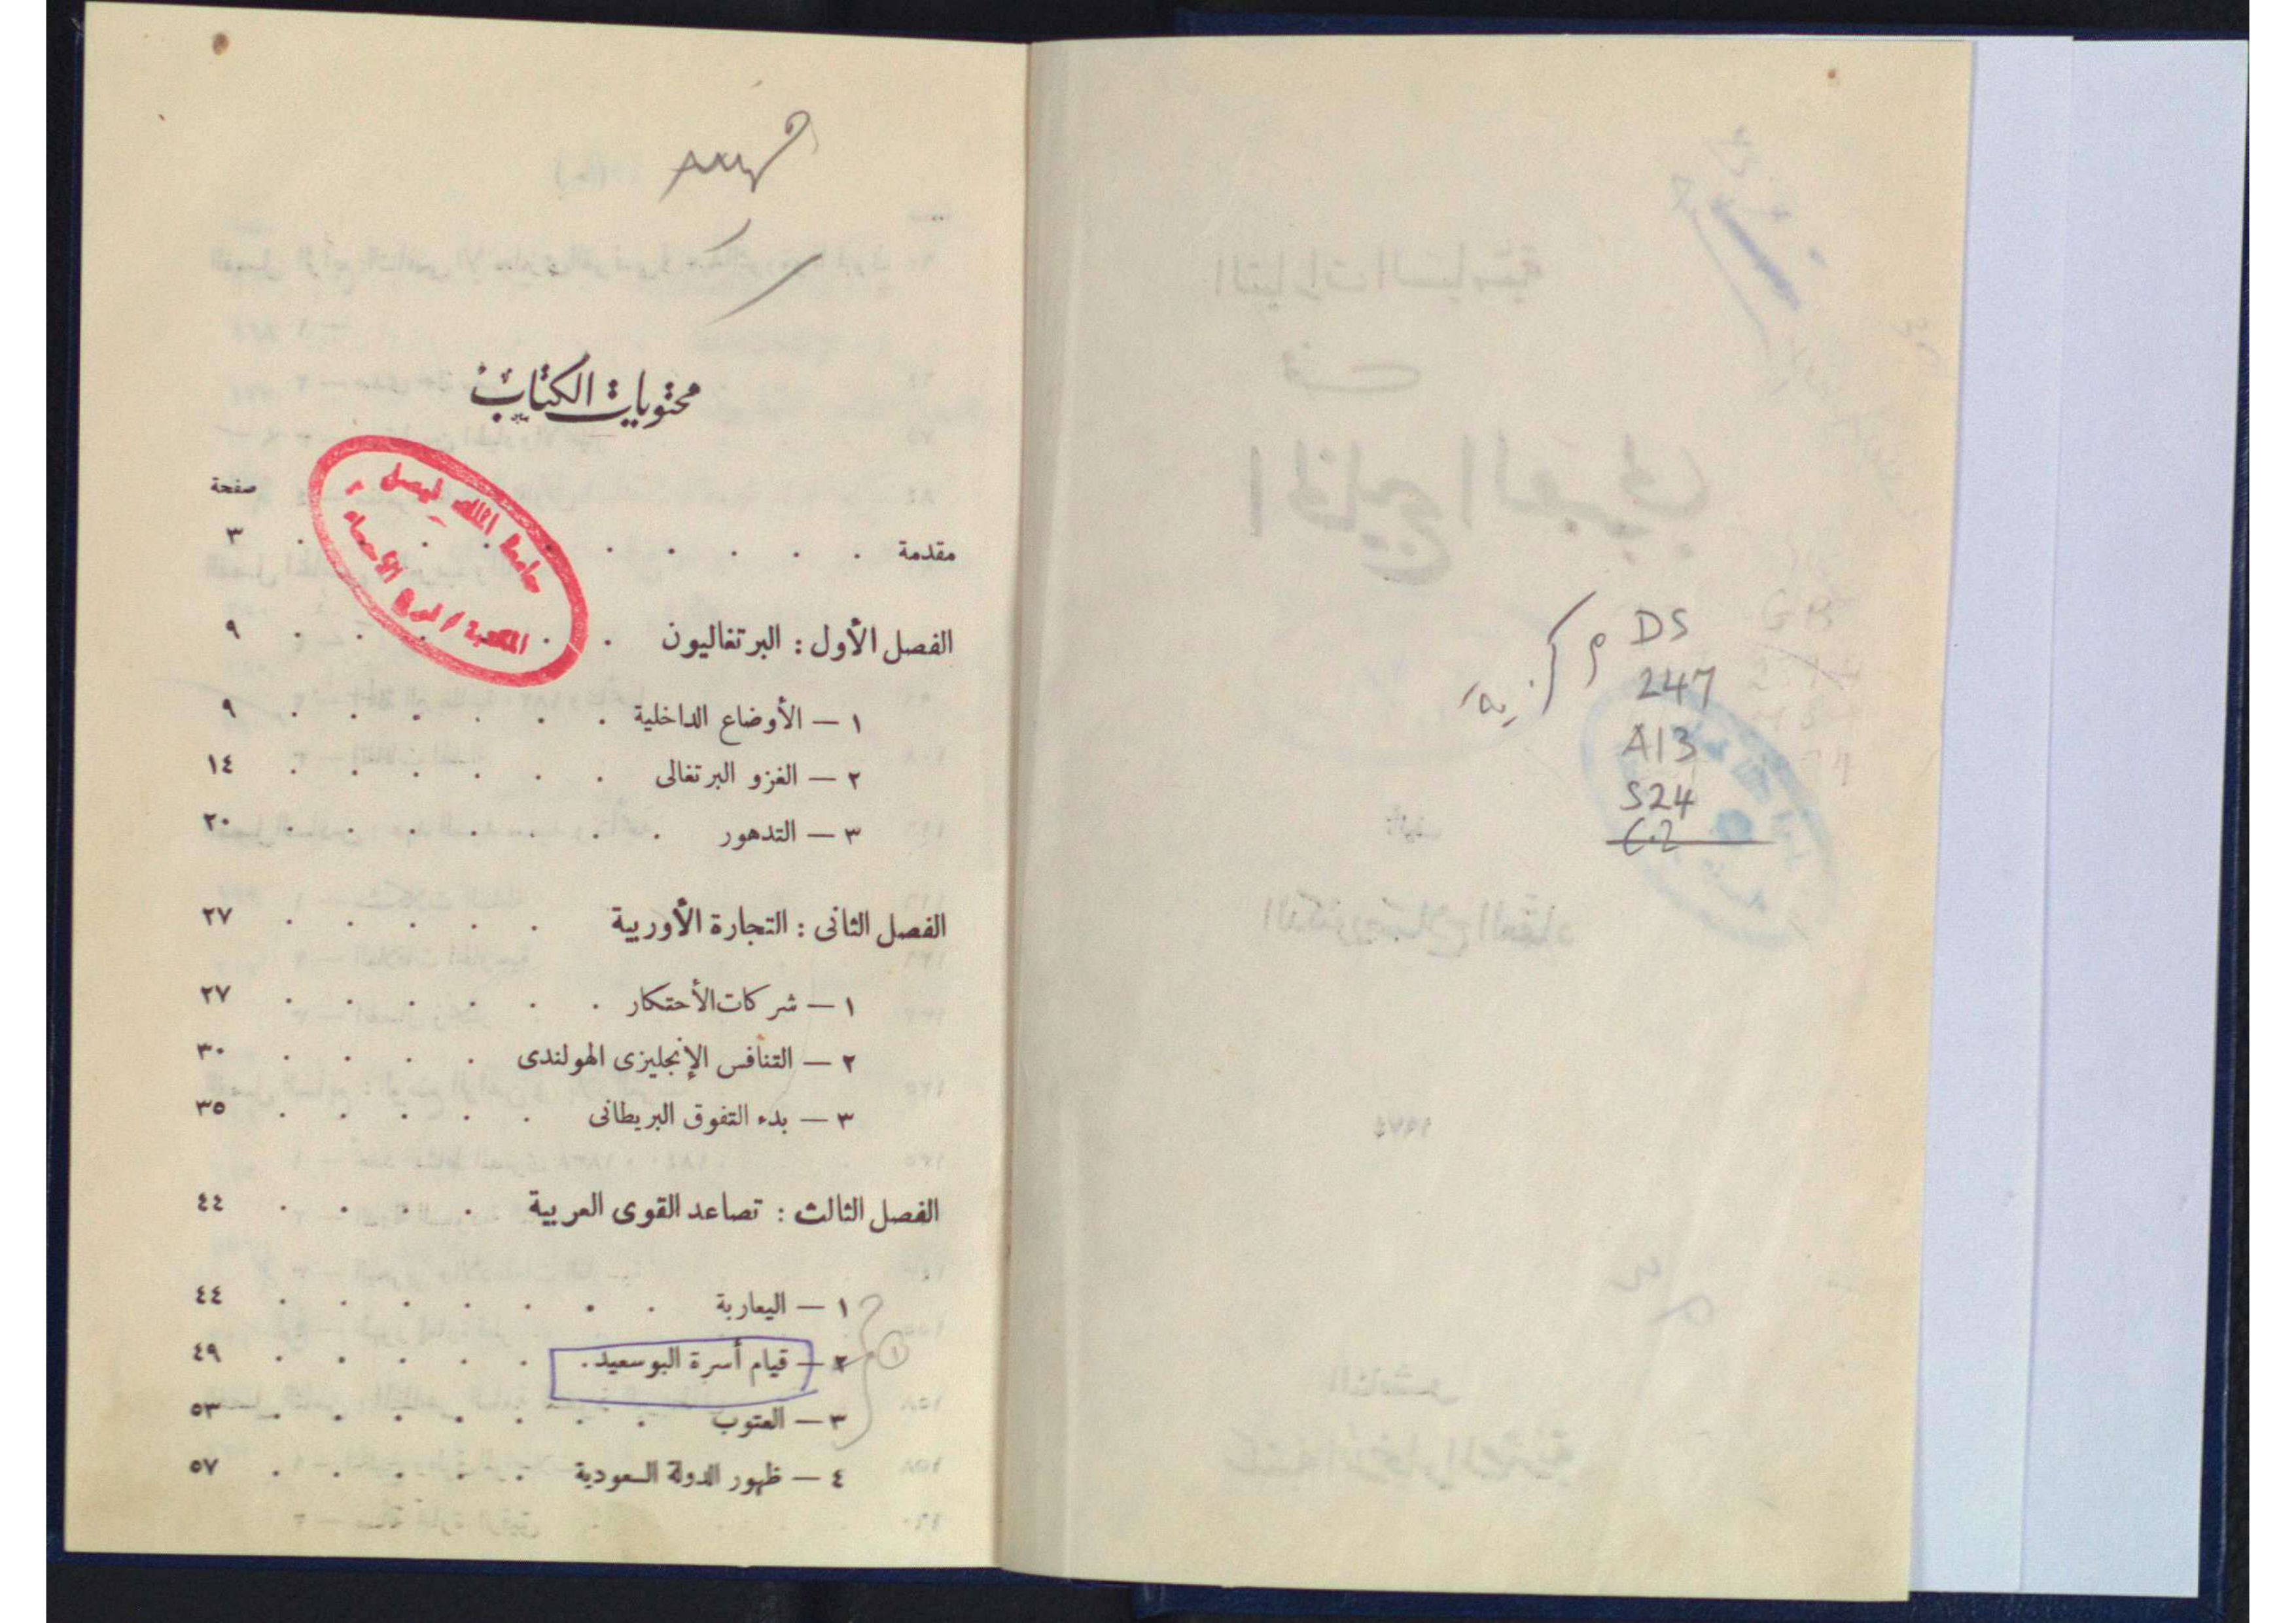 DS
247
A13
S24
C.2
محتويات الكتاب
جامعة الملك فيصل
المكتبة / فرع الأحساء
صفحة
مقدمة . . . . . . . . . . ٣
الفصل الأول : البرتغاليون . . . . . . ٩
١ — الأوضاع الداخلية . . . . . . ٩
٢ — الغزو البرتغالى . . . . . . ١٤
٣ — التدهور . . . . . . . ٢٠
الفصل الثانى : التجارة الأوربية . . . . . ٢٧
١ — شركات الأحتكار . . . . . . ٢٧
٢ — التنافس الإنجليزى الهولندى . . . . ٣٠
٣ — بدء التفوق البريطانى . . . . . ٣٥
الفصل الثالث : تصاعد القوى العربية . . . . ٤٤
١ — اليعاربة . . . . . . . ٤٤
٢ — قيام أسرة البوسعيد . . . . . . ٤٩
٣ — العتوب . . . . . . . ٥٣
٤ — ظهور الدولة السعودية . . . . . ٥٧